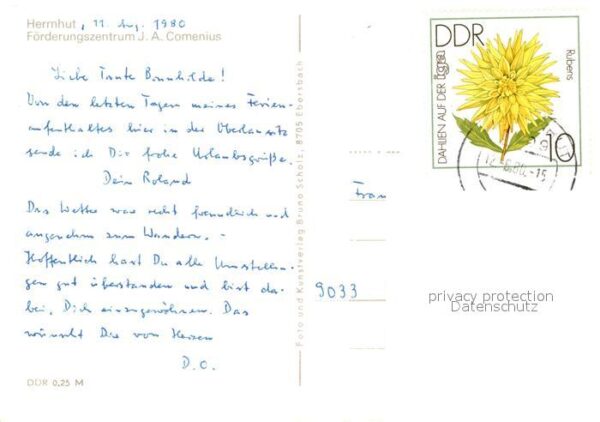 Herrnhut, 11. Aug. 1980
Förderungszentrum J. A. Comenius
Liebe Tante Brunhilde!
Von den letzten Tagen meines Ferien-
aufenthaltes hier in der Oberlausitz
sende ich Dir frohe Urlaubsgrüße.
Dein Roland
Das Wetter war recht freundlich und
angenehm zum Wandern. -
Hoffentlich hast Du alle Umstellun-
gen gut überstanden und bist da-
bei, Dich einzugewöhnen. Das
wünscht Dir von Herzen
D. O.
DDR 0,25 M
Foto und Kunstverlag Bruno Scholz, 8705 Ebersbach
DDR
DAHLIEN AUF DER
Rubens
10
Frau
9033
privacy protection
Datenschutz